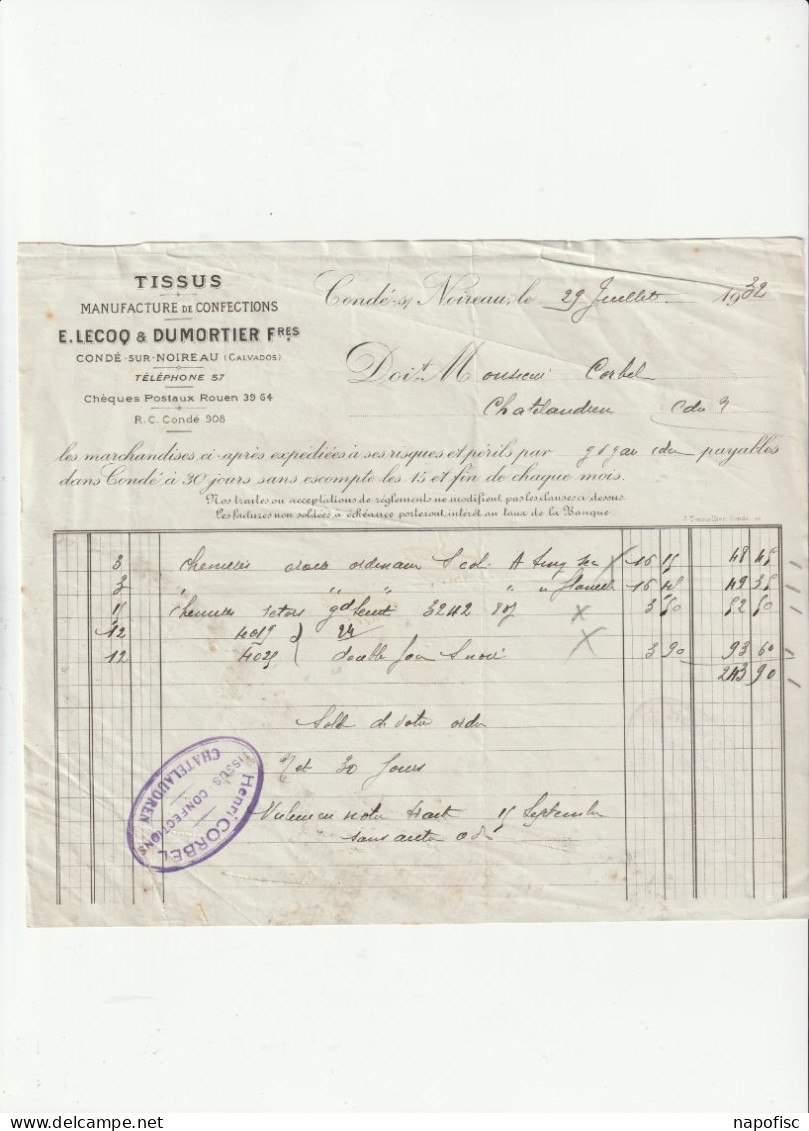 TISSUS
MANUFACTURE DE CONFECTIONS
E. LECOQ & DUMORTIER FRES
CONDÉ-SUR-NOIREAU (CALVADOS)
TÉLÉPHONE 57
Chèques Postaux Rouen 39 64
R.C. Condé 908
Condé-s/ Noireau, le 29 Juillet 1932
Doit Monsieur Corbel
Chatelaudren
les marchandises ci-après expédiées à ses risques et périls par payables
dans Condé à 30 jours sans escompte les 15 et fin de chaque mois.
Nos traites ou acceptations de règlements ne modifient pas les clauses ci dessus.
Les factures non soldées à échéance porteront intérêt au taux de la Banque
3 chemises ordinaire 16 15 48 45
3 " " " " " 16 45 49 35
15 chemises 3242 3 50 52 50
12 4015 24
12 4025 double 3 90 93 60
243 90
Solde de votre ordre
Net 30 Jours
notre 15 Septembre
sans autre
Henri CORBEL
TISSUS CONFECTIONS
CHATELAUDREN
napofisc